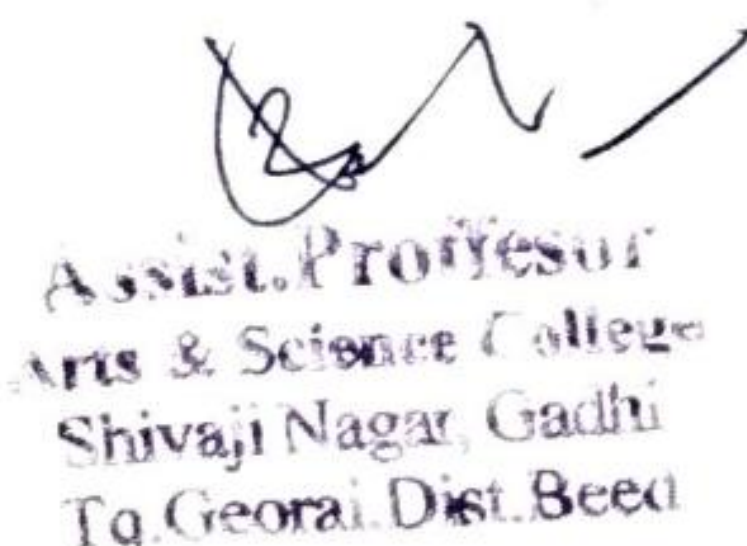 Assist.Proffesor
Arts & Science College
Shivaji Nagar, Gadhi
Tq.Georai.Dist.Beed